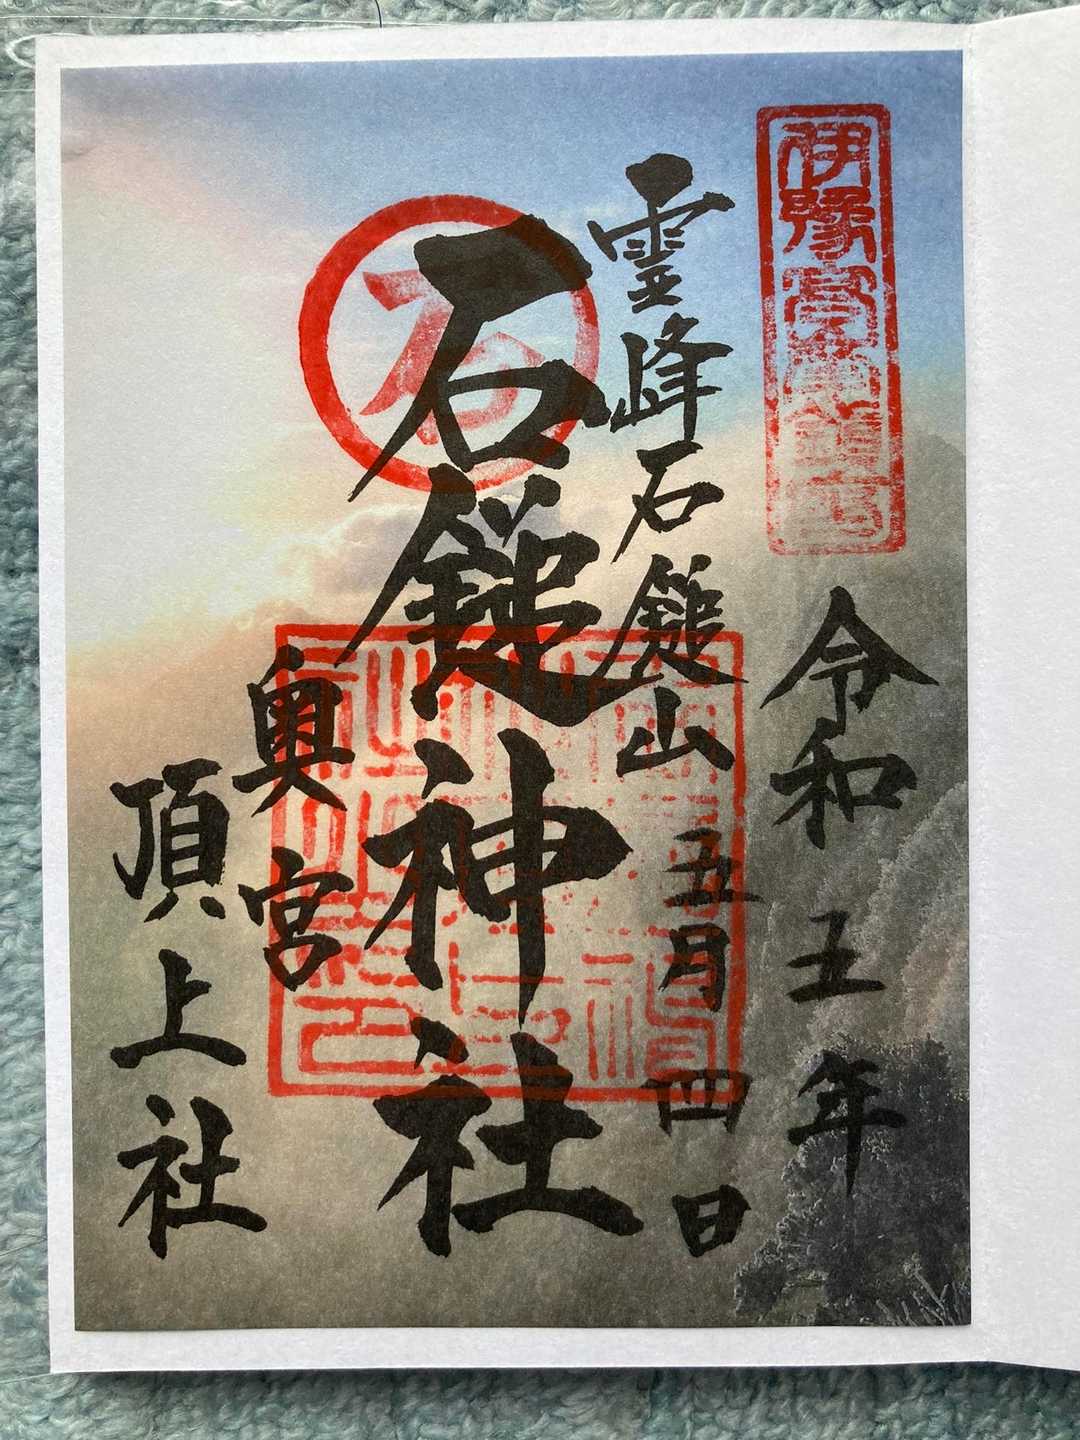 伊豫高
令和五年
霊峰石鎚山
五月四日
石
石鎚神社
奥宮
頂上社